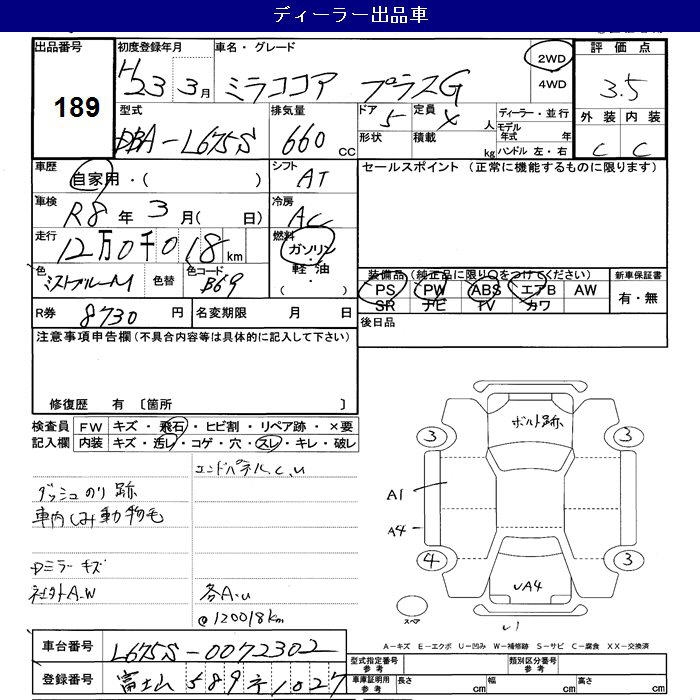 ディーラー出品車
出品番号 初度登録年月 車名・グレード 評価点
189
H23 3月 ミラココア プラスG 2WD 4WD 3.5
型式 排気量 ドア 定員 ディーラー・並行 外装 内装
DBA-L675S 660 CC 5 X 人 モデル年式 年 C C
形状 積載 kg ハンドル 左・右
車歴 シフト セールスポイント (正常に機能するものに限ります)
自家用・( ) AT
車検 冷房
R8年 3月( 日) AC
走行 燃料
12万0千018km ガソリン・
軽油・
( )
色 色替 色コード 装備品(純正品に限り○をつけてください) 新車保証書
ミストブルーM B69 PS PW ABS エアB AW 有・無
SR ナビ TV カワ
R券 8730円 名変期限 月 日 後日品
注意事項申告欄(不具合内容等は具体的に記入して下さい)
修復歴 有 〔箇所 〕
検査員 FW キズ・飛石・ヒビ割・リペア跡・×要
記入欄 内装 キズ・汚レ・コゲ・穴・スレ・キレ・破レ
エンドパネルC,U
ダッシュのり跡
車内しみ動物毛
Dミラーキズ
各A.U
@120018km
ボルト跡
3 3
A1
A4
4 3
UA4
スペア
U1
A-キズ E-エクボ U-凹み W-補修跡 S-サビ C-腐食 XX-交換済
車台番号 L675S-0072302 型式指定番号 参考 類別区分番号 参考
登録番号 富士山 589 1027 車庫証明用 参考 長さ cm 幅 cm 高さ cm